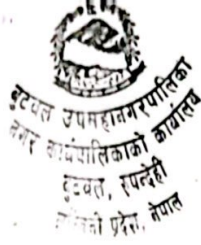 बुटवल उपमहानगरपालिका
नगर कार्यपालिकाको कार्यालय
बुटवल, रुपन्देही
प्रदेश, नेपाल